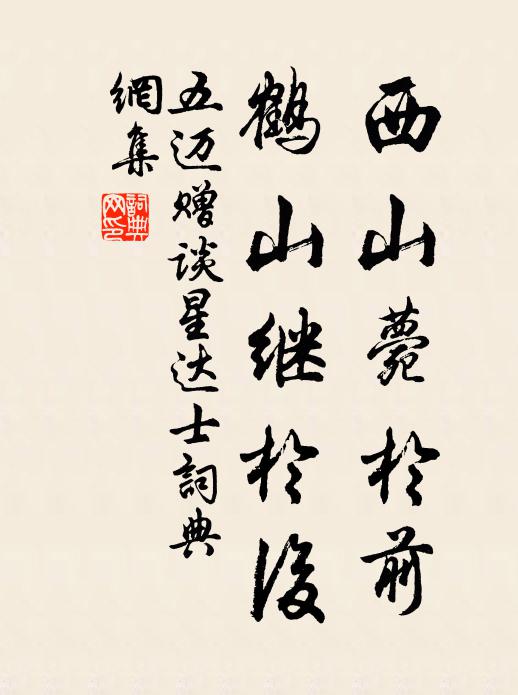 西山薨於前
鹤山继於後
五迈赠谈星达士詞典
網集
詞典
网印